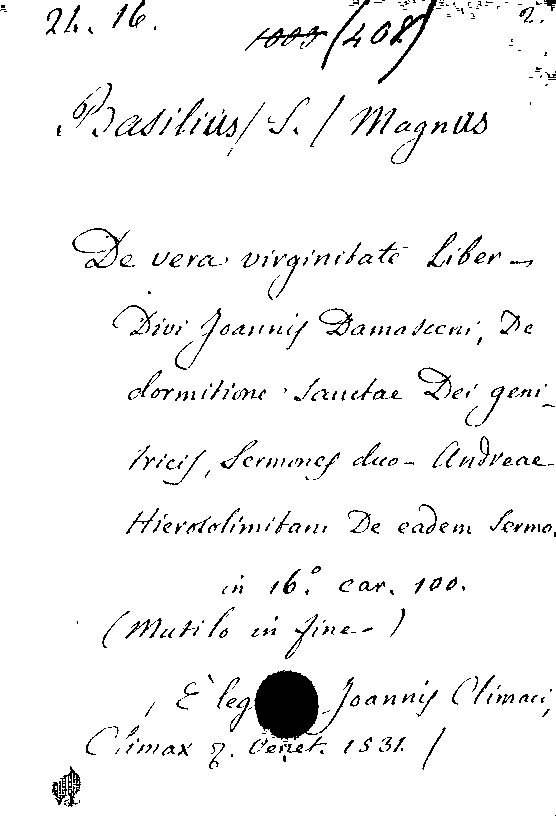 24. 16. 1003 (408) 2.
Basilius / S. / Magnus
De vera virginitate Liber –
Divi Joannis Damasceni, De
dormitione Sanctae Dei geni-
tricis, Sermones duo – Andreae
Hierosolimitani De eadem Sermo.
in 16.° car. 100.
(Mutilo in fine –)
È leg Joannis Climaci,
Climax Venet. 1531. /